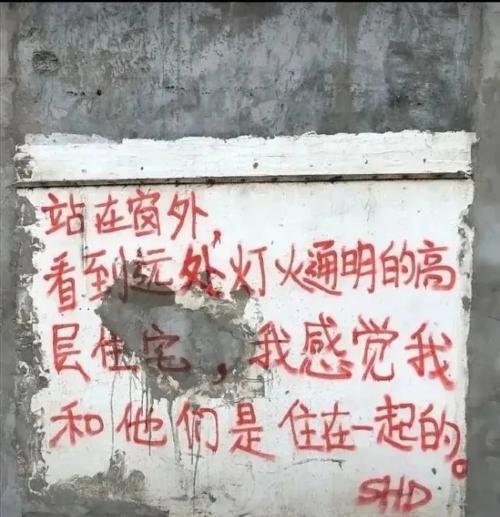 站在窗外,
看到远处灯火通明的高
层住宅,我感觉我
和他们是住在一起的。
SHD